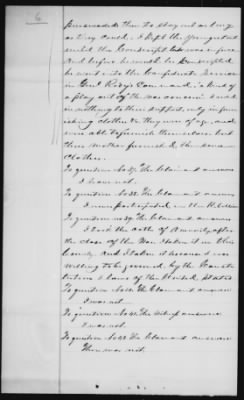 6
persuaded them to stay out as long
as they could, I kept the youngest out
until the Conscript law was in force
and before he would be Conscripted
he went into the Confederate Service
in Genl
nothing to their support, only in fur-
nishing clothes & they were of age, and
were able to furnish themselves but
their mother furnished them some
Clothes.
To question No 37. The Claimant answers
I have not.
To question No 38. The Claimant answers
I
To question No 39. The Claimant answers
I took the oath of Amnesty after
the close of the War. I took it in this
County. And I take it because I was
willing to be governed by the Consti-
tution & laws of the United States
To question No 40. The Claimant answers
I was not.
To question No 41. The answers
I was not.
To question No 42. The Claimant answers
There was not.